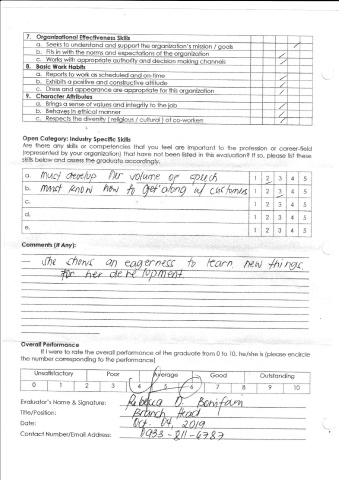 7. Organizational Effectiveness Skills
a. Seeks to understand and support the organization's mission / goals
b. Fits in with the norms and expectations of the organization
c. Works with appropriate authority and decision making channels
8. Basic Work Habits
a. Reports to work as scheduled and on-time
b. Exhibits a positive and constructive attitude
c. Dress and appearance are appropriate for this organization
9. Character Attributes
a. Brings a sense of values and integrity to the job
b. Behaves in ethical manner
c. Respects the diversity ( religious / cultural ) of co-workers
Open Category: Industry Specific Skills
Are there any skills or competencies that you feel are important to the profession or career-field
(represented by your organization) that have not been listed in this evaluation? If so, please list these
skills below and assess the graduate accordingly.
a. must develop her volume of speech 1 2 3 4 5
b. must know how to get along w/ customers 1 2 3 4 5
c. 1 2 3 4 5
d. 1 2 3 4 5
e. 1 2 3 4 5
Comments (If Any):
She shows an eagerness to learn new things
for her development.
Overall Performance
If I were to rate the overall performance of the graduate from 0 to 10, he/she is (please encircle
the number corresponding to the performance)
Unsatisfactory Poor Average Good Outstanding
0 1 2 3 4 5 6 7 8 9 10
Evaluator's Name & Signature: Rebecca D. Bonifam
Title/Position: Branch Head
Date: Oct. 04, 2019
Contact Number/Email Address: 0933-811-6787